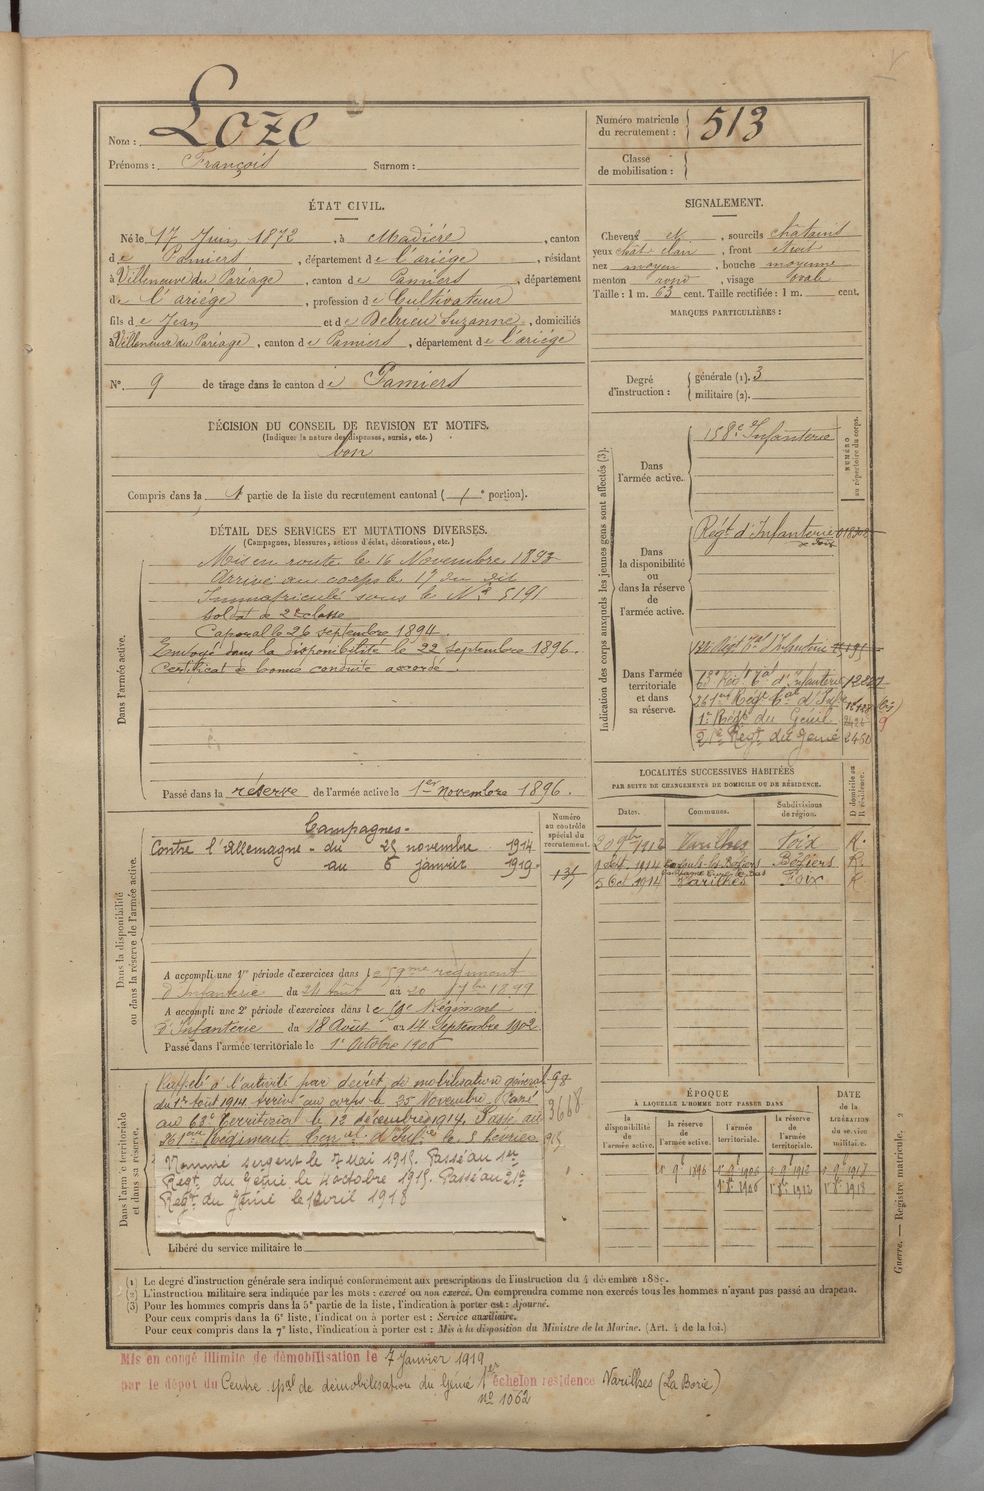 Nom : Loze
Prénoms : François Surnom :
Numéro matricule du recrutement : 513
Classe de mobilisation :
ÉTAT CIVIL.
Né le 17 Juin 1872, à Madière, canton
de Pamiers, département de l'ariége, résidant
à Villeneuve du Paréage, canton de Pamiers, département
de l'ariége, profession de Cultivateur
fils de Jean et de Debrieu Suzanne, domiciliés
à Villeneuve du Paréage, canton de Pamiers, département de l'ariége
N° 9 de tirage dans le canton de Pamiers
SIGNALEMENT.
Cheveux N, sourcils châtains
yeux chât clair, front étroit
nez moyen, bouche moyenne
menton rond, visage ovale
Taille : 1 m. 63 cent. Taille rectifiée : 1 m. cent.
MARQUES PARTICULIÈRES :
Degré d'instruction : générale (1). 3
militaire (2).
DÉCISION DU CONSEIL DE REVISION ET MOTIFS.
(Indiquer la nature des dispenses, sursis, etc.)
bon
Compris dans la 1 partie de la liste du recrutement cantonal ( e portion).
DÉTAIL DES SERVICES ET MUTATIONS DIVERSES.
(Campagnes, blessures, actions d'éclat, décorations, etc.)
Dans l'armée active.
Mis en route le 16 Novembre 1893
Arrivé au corps le 17 du dit
Immatriculé sous le N° 5191
Soldat de 2e classe
Caporal le 26 septembre 1894.
Envoyé dans la disponibilité le 22 septembre 1896.
Certificat de bonne conduite accordé.
Passé dans la réserve de l'armée active le 1er novembre 1896.
Indication des corps auxquels les jeunes gens sont affectés (3).
NUMÉRO au répertoire du corps.
Dans l'armée active.
158e d'Infanterie
Dans la disponibilité ou dans la réserve de l'armée active.
Régt d'Infanterie
de Foix
Dans l'armée territoriale et dans sa réserve.
134 Régt Tal d'Infanterie
Rég Tal d'Infanterie
261me Régt Tal d'Infie
1r Régt du Génie
21e Régt du Génie 2450
LOCALITÉS SUCCESSIVES HABITÉES
PAR SUITE DE CHANGEMENTS DE DOMICILE OU DE RÉSIDENCE.
Dates. Communes. Subdivisions de région. D domicile ou R résidence.
20 9bre 1912 Varilhes Foix R.
1 Sept 1914 Béziers R.
5 Oct 1914 Varilhes Foix R
Dans la disponibilité ou dans la réserve de l'armée active.
Numéro au contrôle spécial du recrutement.
Campagnes.
Contre l'Allemagne - du 25 novembre 1914
au 6 janvier 1919.
A accompli une 1re période d'exercices dans le 59me régiment
d'Infanterie du 24 Août au 20 7bre 1899
A accompli une 2e période d'exercices dans le 59e Régiment
d'Infanterie du 18 Août au 14 Septembre 1902
Passé dans l'armée territoriale le 1r Octobre 1906
Dans l'armée territoriale et dans sa réserve.
Rappelé à l'activité par décret de mobilisation général
du 1er Août 1914. Arrivé au corps le 25 Novembre. Passé
au 63e Territorial le 12 décembre 1914. Passé au
261me Régiment Tal d'Infie le 5 février 1915
98
3668
Nommé sergent le 7 Mai 1915. Passé au 1er
Régt. du Génie le 4 octobre 1915. Passé au 21e
Régt. du Génie le 1 avril 1918
Libéré du service militaire le
ÉPOQUE
À LAQUELLE L'HOMME DOIT PASSER DANS
la disponibilité de l'armée active.
la réserve de l'armée active.
l'armée territoriale.
la réserve de l'armée territoriale.
DATE de la LIBÉRATION du service militaire.
1r 9e 1896 1r 9e 1906 1r 9e 1912 1r 9e 1917
1r 8e 1906 1r 8e 1912 1r 8e 1918
Guerre. — Registre matricule. 2
(1) Le degré d'instruction générale sera indiqué conformément aux prescriptions de l'instruction du 4 décembre 1889.
(2) L'instruction militaire sera indiquée par les mots : exercé ou non exercé. On comprendra comme non exercés tous les hommes n'ayant pas passé au drapeau.
(3) Pour les hommes compris dans la 5e partie de la liste, l'indication à porter est : Ajourné.
Pour ceux compris dans la 6e liste, l'indication à porter est : Service auxiliaire.
Pour ceux compris dans la 7e liste, l'indication à porter est : Mis à la disposition du Ministre de la Marine. (Art. 4 de la loi.)
Mis en congé illimité de démobilisation le 7 Janvier 1919
par le dépôt du Centre spal de démobilisation du Génie 1er échelon résidence Varilhes (La Borie)
n° 1062